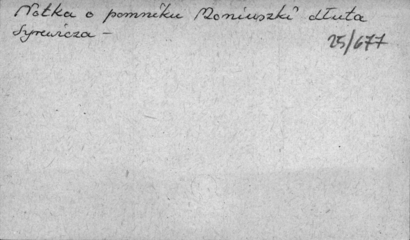 Notka o pomniku Moniuszki dłuta
Syrewicza –
25/677